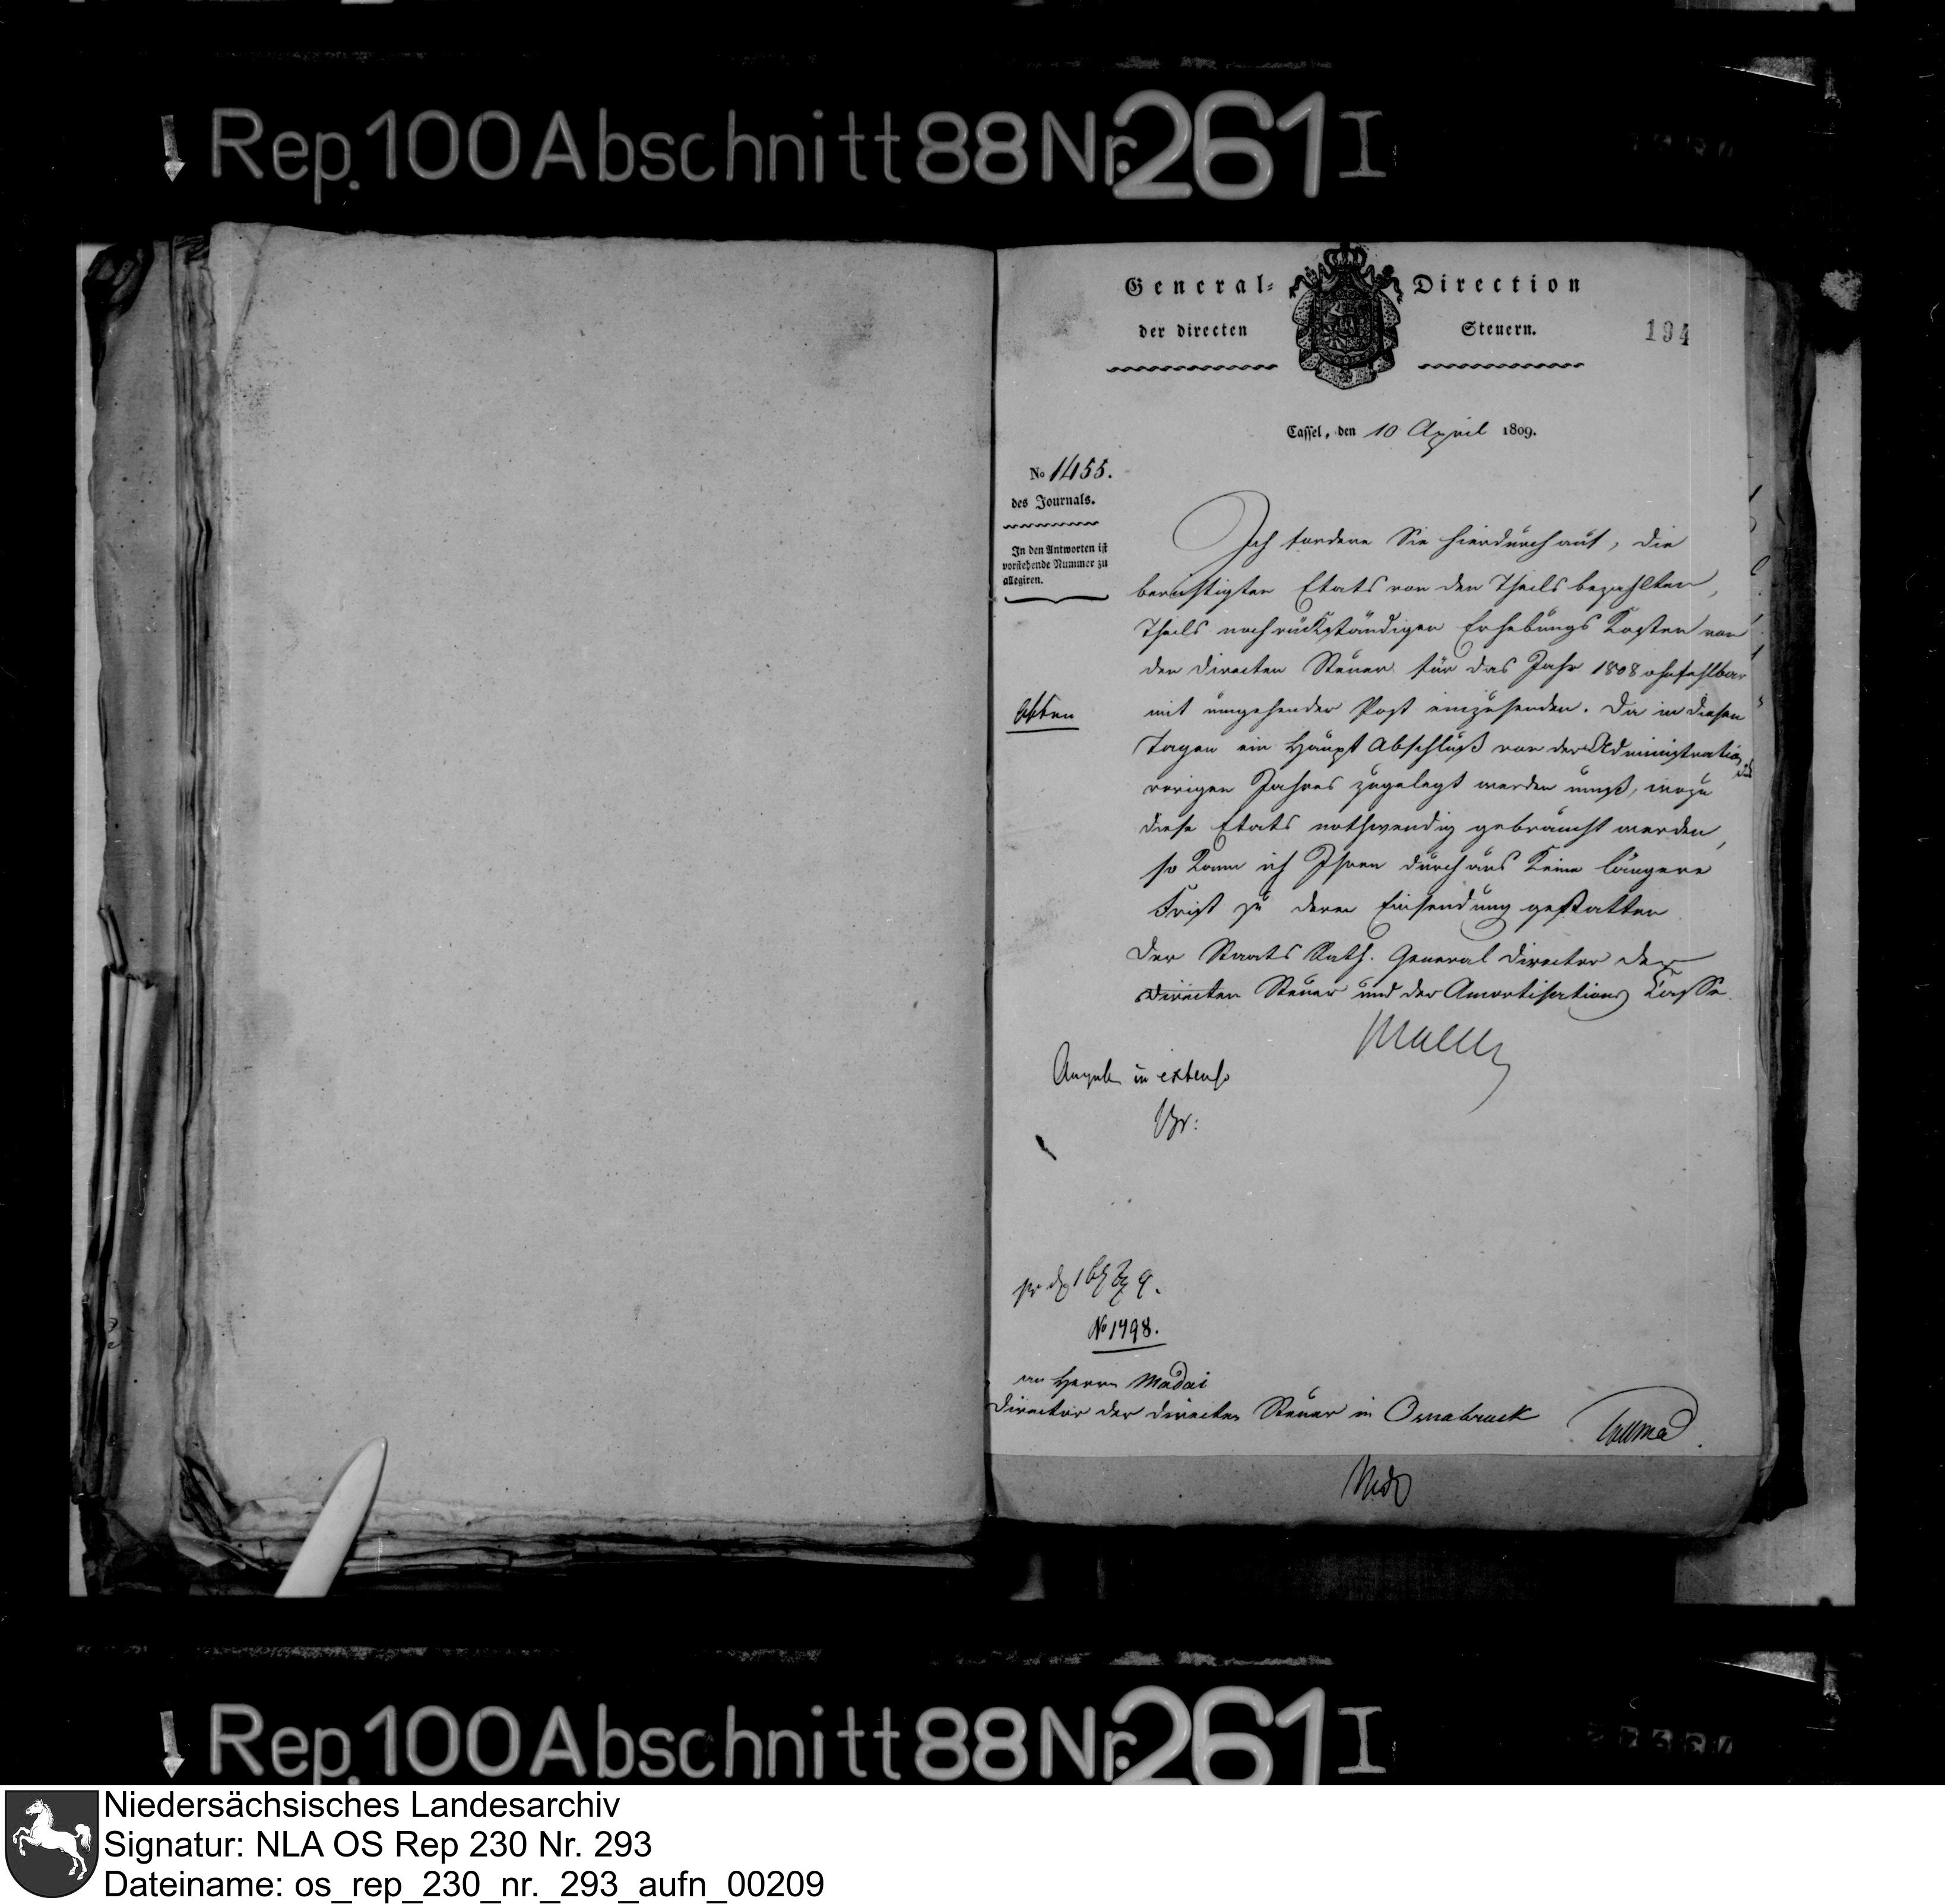 Rep. 100 Abschnitt 88 Nr. 261 I
General-Direction
der directen Steuern.
194
Cassel, den 10 April 1809.
No 1455.
des Journals.
In den Antworten ist
vorstehende Nummer zu
allegiren.
Ich fordere Sie hierdurch auf, die
berichtigten Etats von den Theils bezahlten,
Theils noch rückständigen Erhebungs Kosten von
den directen Steuer für das Jahr 1808 ohnfehlbar
mit umgehender Post einzusenden. Da in diesen
Tagen ein Haupt Abschluß von der Administration des
vorigen Jahres zugelegt werden muß, wozu
diese Etats nothwendig gebraucht werden,
so kann ich Ihnen durchaus keine längere
Frist zu deren Einsendung gestatten
Der Staats Rath. General Director der
directen Steuer und der Amortisations Casse.
in extenso
No 1498.
an Herrn Madai
Director der directen Steuer in Osnabruck
Rep. 100 Abschnitt 88 Nr. 261 I
Niedersächsisches Landesarchiv
Signatur: NLA OS Rep 230 Nr. 293
Dateiname: os_rep_230_nr._293_aufn_00209